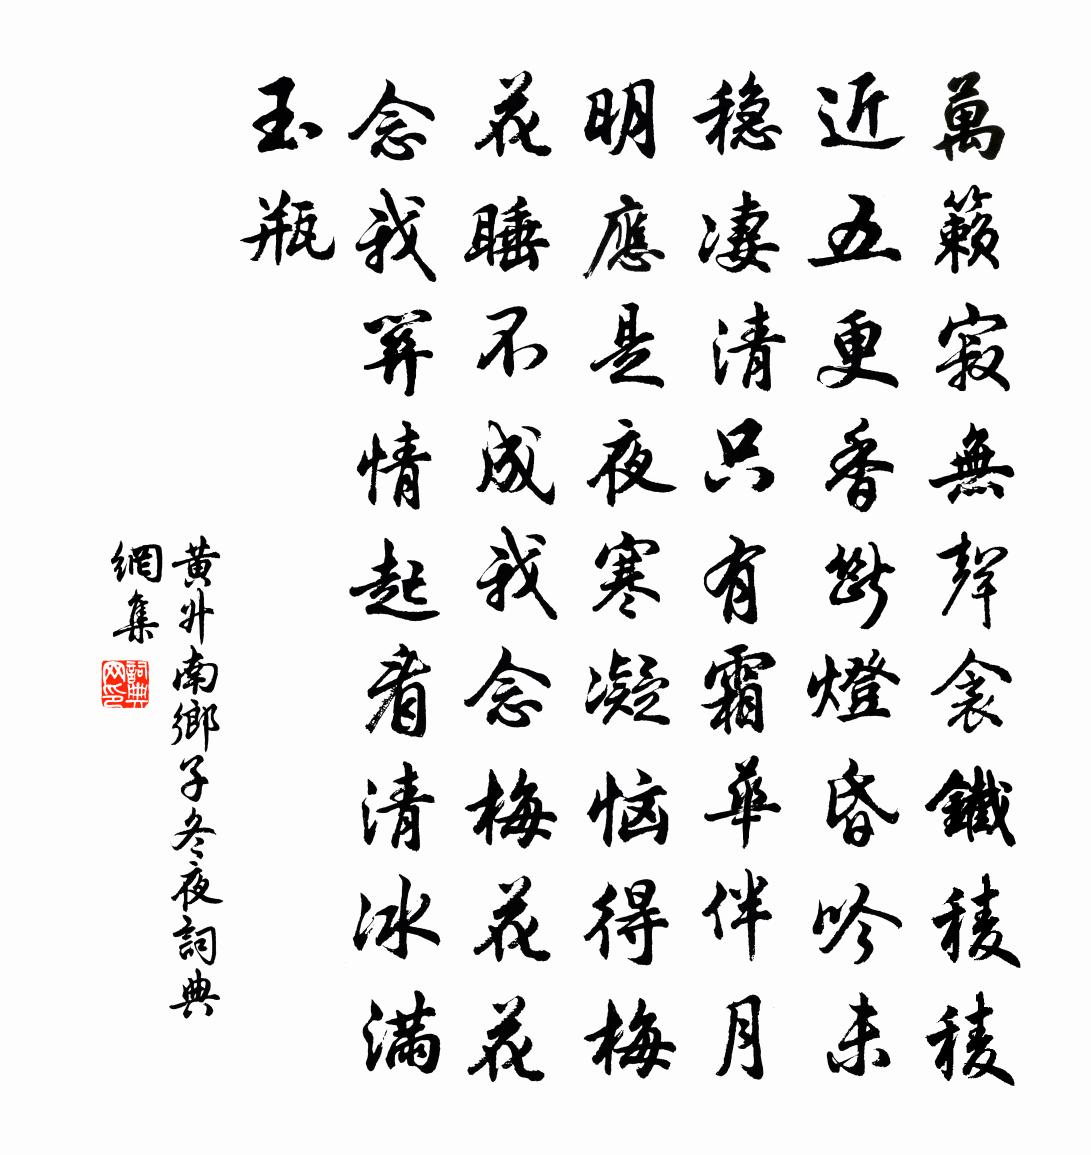 萬籟寂無聲衾鐵稜稜
近五更香斷燈昏吟未
稳淒清只有霜華伴月
明應是夜寒凝恼得梅
花睡不成我念梅花花
念我关情起看清冰滿
玉瓶
黄升南鄉子冬夜詞典
網集
詞典
网印